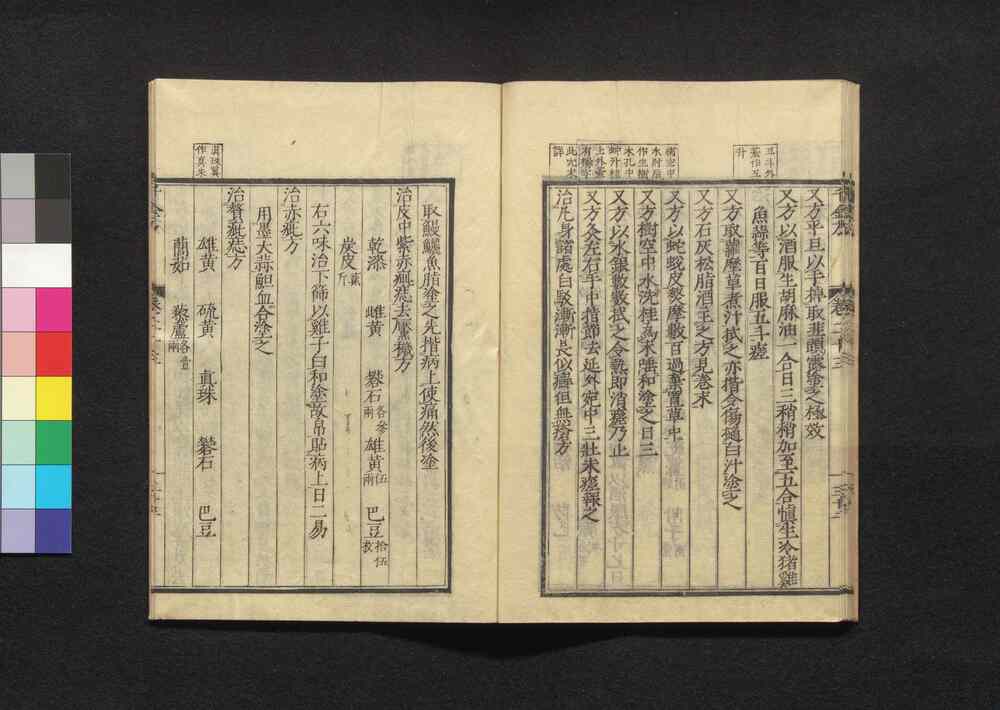 又方平旦以手掉取韭頭露塗之極效
又方以酒服生胡麻油一合日三稍稍加至五合慎生冷猪雞
魚蒜等百日服五斗瘥
又方取蘿摩草煮汁拭之亦揩令傷擿白汁塗之
又方石灰松脂酒主之方見卷末
又方以蛇蛻皮熨摩數百過棄置草中
又方樹空中水洗桂為末唾和塗之日三
又方以水銀數數拭之令熱即消瘥乃止
又方灸左右手中指節去延外宛中三壯未瘥報之
治凡身諸處白駁漸漸長似癬但無瘡方
樹空中
水肘後
作生樹
木孔中
蚛汁桂
上外臺
有楊字
此穴未
詳
五斗外
臺作五
升
取鰻鱺魚脂塗之先揩病上使痛然後塗
治皮中紫赤疵痣去黶穢方
乾漆 雌黃 礬石各參兩 雄黃伍兩 巴豆拾伍枚
炭皮貳斤
右六味治下篩以雞子白和塗故帛貼病上日二易
治赤疵方
用墨大蒜鱓血合塗之
治贅疵痣方
雄黃 硫黃 真珠 礬石 巴豆
䕡茹 藜蘆各壹兩
真珠翼
作真朱